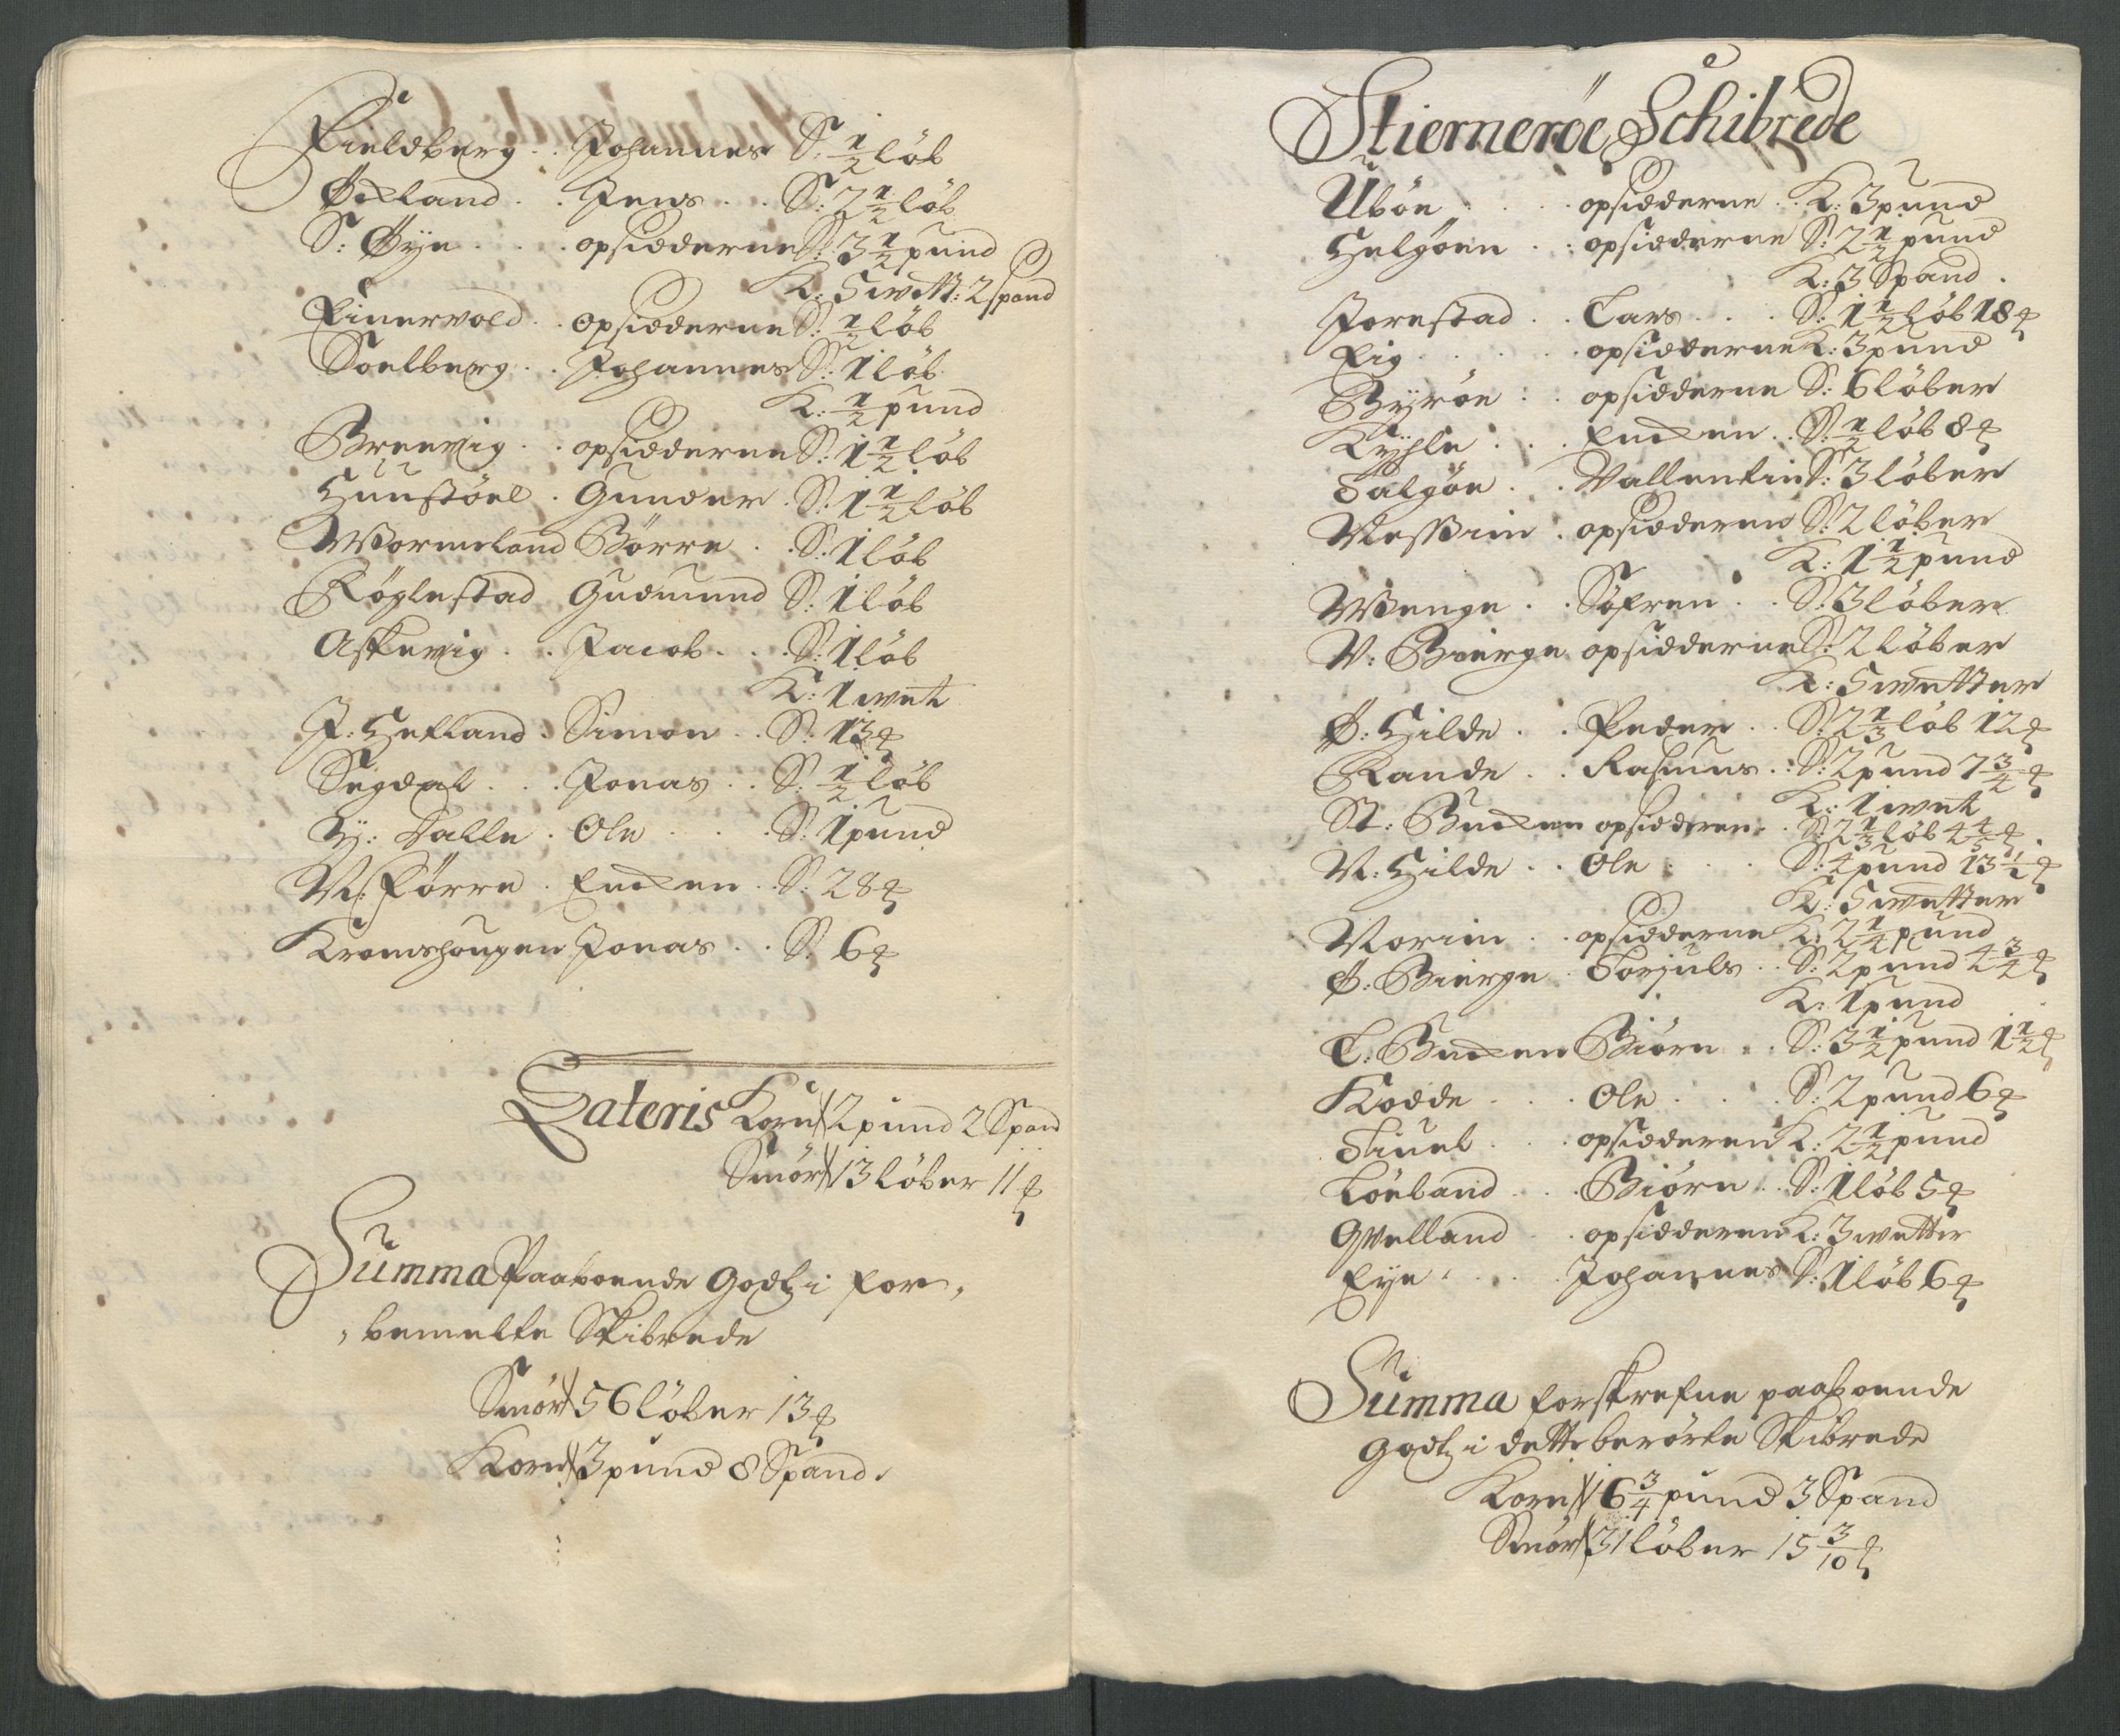 Fieldberg . . Johannes S: 1/2 löb
Öxland . . Jens . . S: 2 1/2 löb
S: Øye . . . opsidderne S: 3 1/2 pund
K: 5 wett: 2 spand
Einervold . . opsidderne S: 1/2 löb
Soelberg . . Johannes S: 1 löb
K: 1/2 pund
Brenvig . . opsidderne S: 1 1/2 löb
Huustöel . Gunder . S: 1 1/2 löb
Wormeland Börre . . S: 1 löb
Röglestad Gudmund S: 1 löb
Askevig . . Jacob . . S: 1 löb
K: 1 wet
J: Hetland . Simon . . S: 13 ℔
Segdal . . . Jonas . . S: 1/2 löb
Y: Dalle . Ole . . . S: 1 pund
N: Förre . Encken . S: 28 ℔
Kromshougen Jonas . . S: 6 ℔
Lateris Korn 2 pund 2 Spand
Smör 13 löber 11 ℔
Summa Paaboende Godtz i for,
, bemelte Skibrede
Smör 56 löber 13 ℔
Korn 3 pund 8 Spand.
Stierneröe Schibrede
Uböe . . . opsidderne . K: 3 pund
Helgöen . : opsidderne S: 2 1/2 pund
K: 3 Spand .
Jorestad . . Lars . . . S: 1 1/2 löb 18 ℔
Eig . . . . opsidderne K: 3 pund
Byröe : . opsidderne S: 6 löber
Kyhle . . . Encken . . S: 1/2 löb 8 ℔
Talgöe . . Vallentin S: 3 löber
Nessøim . opsidderne S: 2 löber
K: 1 1/2 pund
Wenge . . Söfren . . S: 3 löber
N: Bierge opsidderne S: 2 löber
K: 5 wetter
Ø: Hilde . . Peder . . S: 2 1/3 löb 12 ℔
Rande . . Rasmus . : S: 2 pund 7 3/4 ℔
K: 1 wet
St: Bucken opsidderne . S: 2 1/3 löb 4 4/5 ℔ .
N: Hilde . . Ole . . . S: 4 pund 13 1/2 ℔
K: 5 wetter
Norim . . opsidderne K: 2 1/4 pund
Ø: Bierge . Torjuls . . S: 2 pund 4 3/4 ℔
K: 1 pund
L: Bucken Biörn . . S: 3 1/2 pund 1 1/2 ℔
Kodde . . . Ole . . . S: 2 pund 6 ℔
Tiuel . . . opsidderne K: 2 1/2 pund
Löeland . . . Biörn . . S: 1 löb 5 ℔
Qvelland . . opsidderne K: 3 wetter
Eye . . . . Johannes S: 1 löb 6 ℔
Summa forskrefne paaboende
Godtz i dette berörte Skibrede
Korn 16 3/4 pund 3 Spand
Smör 31 löber 15 3/10 ℔